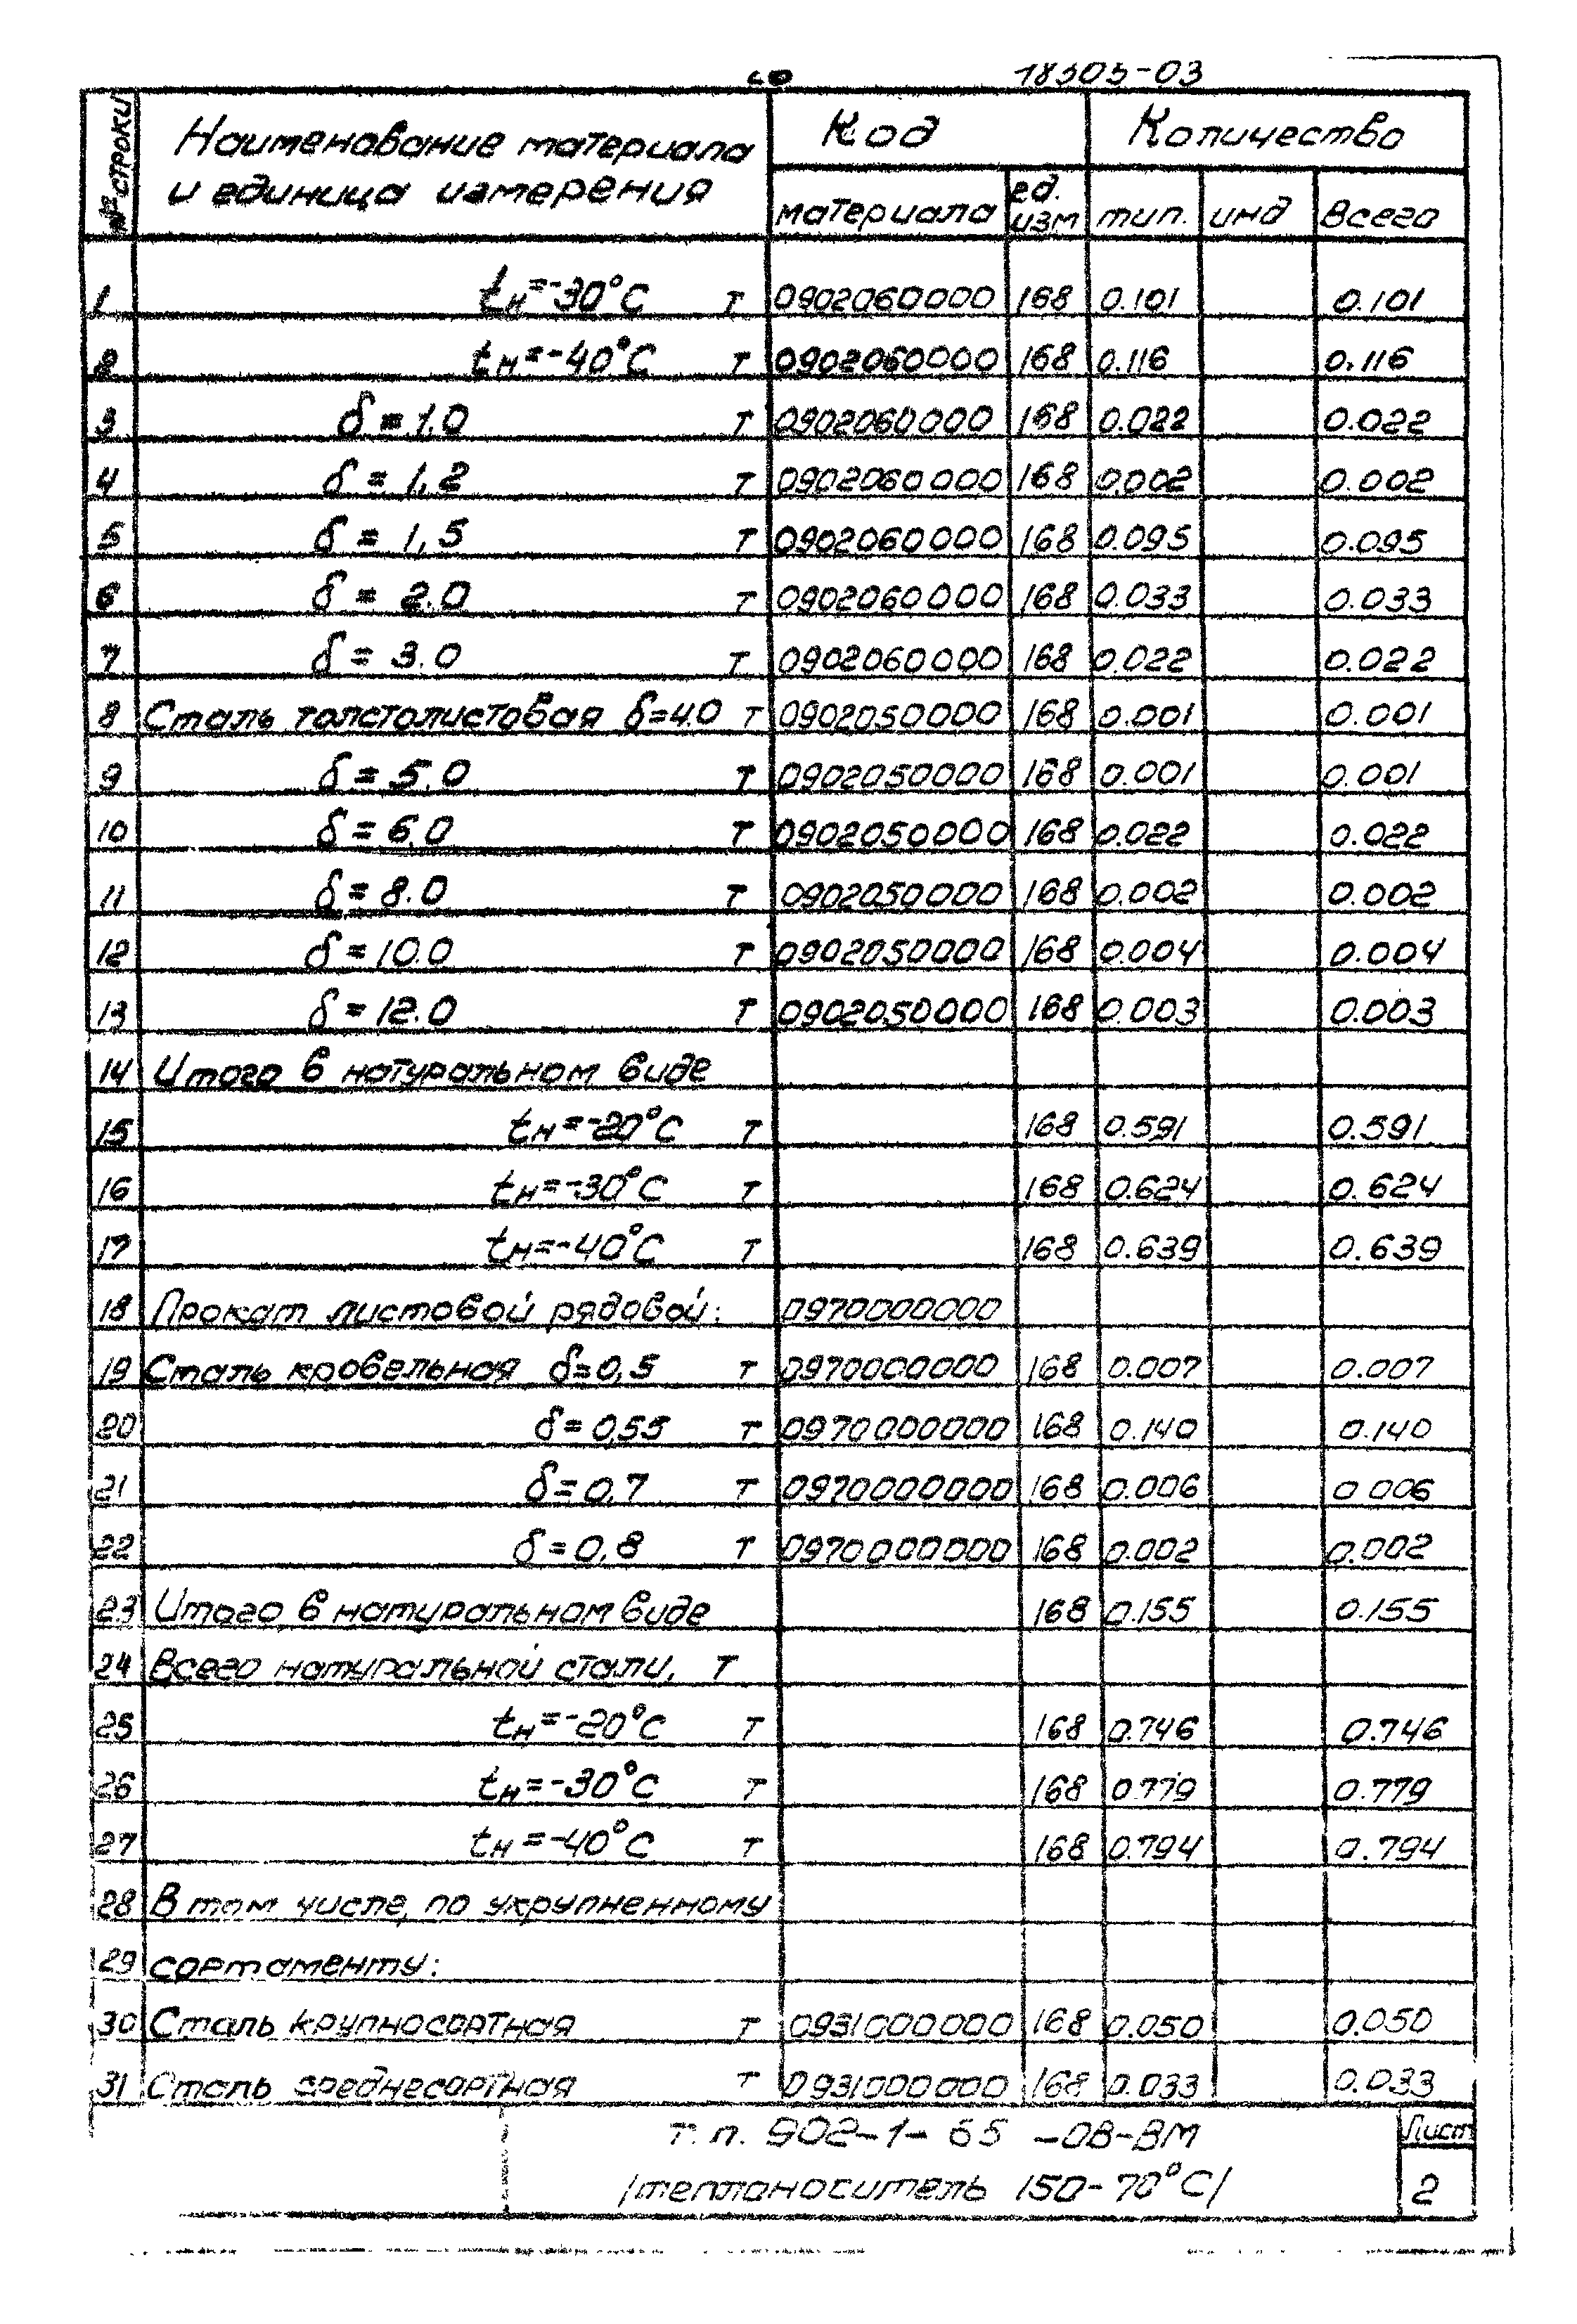 18505-03
№ строки Наименование материала и единица измерения Код Количество
материала ед. изм тип. инд Всего
1 tн=-30°С т 0902060000 168 0.101 0.101
2 tн=-40°С т 0902060000 168 0.116 0.116
3 δ=1,0 т 0902060000 168 0.022 0.022
4 δ=1,2 т 0902060000 168 0.002 0.002
5 δ=1,5 т 0902060000 168 0.095 0.095
6 δ=2.0 т 0902060000 168 0.033 0.033
7 δ=3.0 т 0902060000 168 0.022 0.022
8 Сталь толстолистовая δ=4.0 т 0902050000 168 0.001 0.001
9 δ=5.0 т 0902050000 168 0.001 0.001
10 δ=6.0 т 0902050000 168 0.022 0.022
11 δ=8.0 т 0902050000 168 0.002 0.002
12 δ=10.0 т 0902050000 168 0.004 0.004
13 δ=12.0 т 0902050000 168 0.003 0.003
14 Итого в натуральном виде
15 tн=-20°С т 168 0.591 0.591
16 tн=-30°С т 168 0.624 0.624
17 tн=-40°С т 168 0.639 0.639
18 Прокат листовой рядовой: 0970000000
19 Сталь кровельная δ=0,5 т 0970000000 168 0.007 0.007
20 δ=0,55 т 0970000000 168 0.140 0.140
21 δ=0,7 т 0970000000 168 0.006 0.006
22 δ=0,8 т 0970000000 168 0.002 0.002
23 Итого в натуральном виде 168 0.155 0.155
24 Всего натуральной стали, т
25 tн=-20°С т 168 0.746 0.746
26 tн=-30°С т 168 0.779 0.779
27 tн=-40°С т 168 0.794 0.794
28 В том числе, по укрупненному
29 сортаменту:
30 Сталь крупносортная т 0931000000 168 0.050 0.050
31 Сталь среднесортная т 0931000000 168 0.033 0.033
т.п. 902-1-65 -ОВ-ВМ Лист
/теплоноситель 150-70°С/ 2